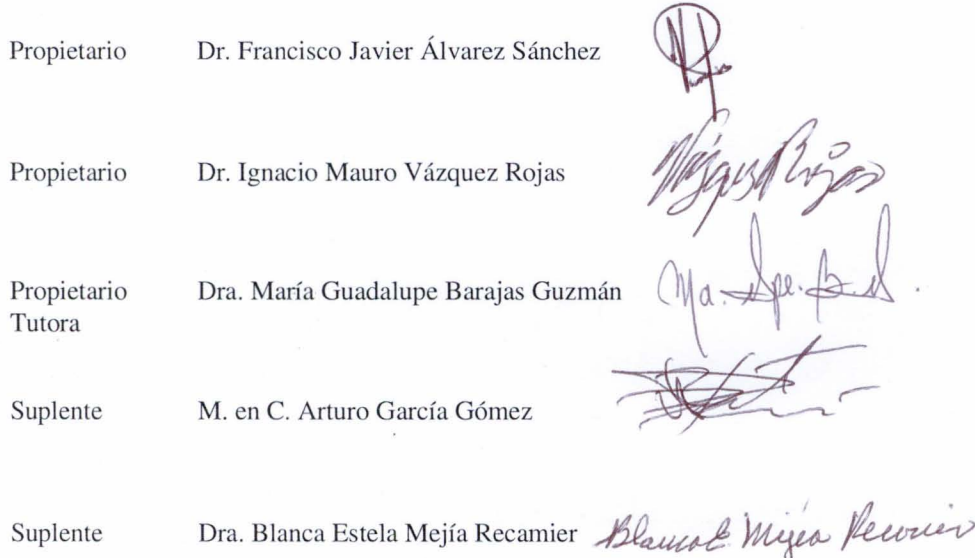 Propietario Dr. Francisco Javier Álvarez Sánchez
Propietario Dr. Ignacio Mauro Vázquez Rojas
Vázquez Rojas
Propietario Dra. María Guadalupe Barajas Guzmán
Tutora
Ma. Gpe.
Suplente M. en C. Arturo García Gómez
Suplente Dra. Blanca Estela Mejía Recamier
Blanca E. Mejía Recamier